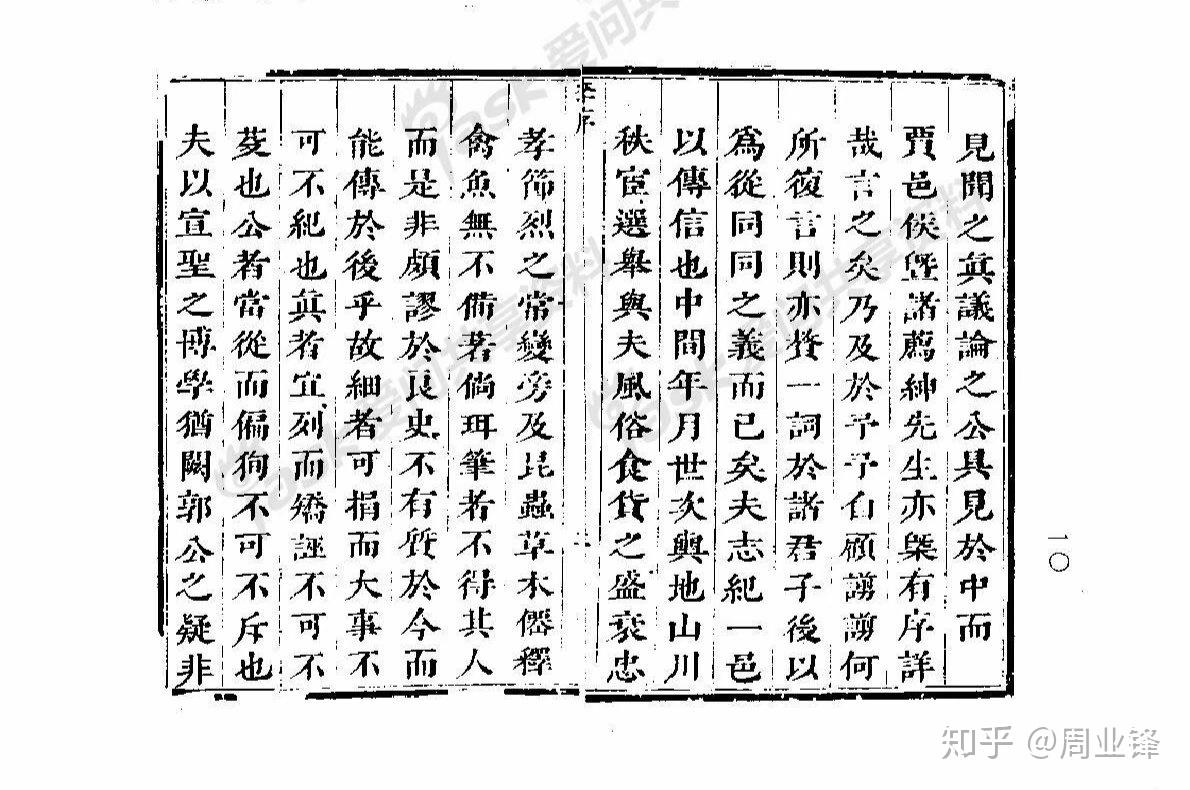 見聞之眞議論之公具見於中而
賈邑侯曁諸薦紳先生亦槩有序詳
哉言之矣乃及於予予自顧謭謭何
所復言則亦贅一詞於諸君子後以
爲從同同之義而已矣夫志紀一邑
以傳信也中間年月世次輿地山川
秩官選舉與夫風俗食貨之盛衰忠
孝節烈之常變旁及昆蟲草木僊釋
禽魚無不備若倘珥筆者不得其人
而是非頗謬於良史不有質於今而
能傳於後乎故細者可捐而大事不
可不紀也眞者宜列而矯誣不可不
芟也公者當從而偏狥不可不斥也
夫以宣聖之博學猶闕郭公之疑非
序
一〇
知乎 @周业锋